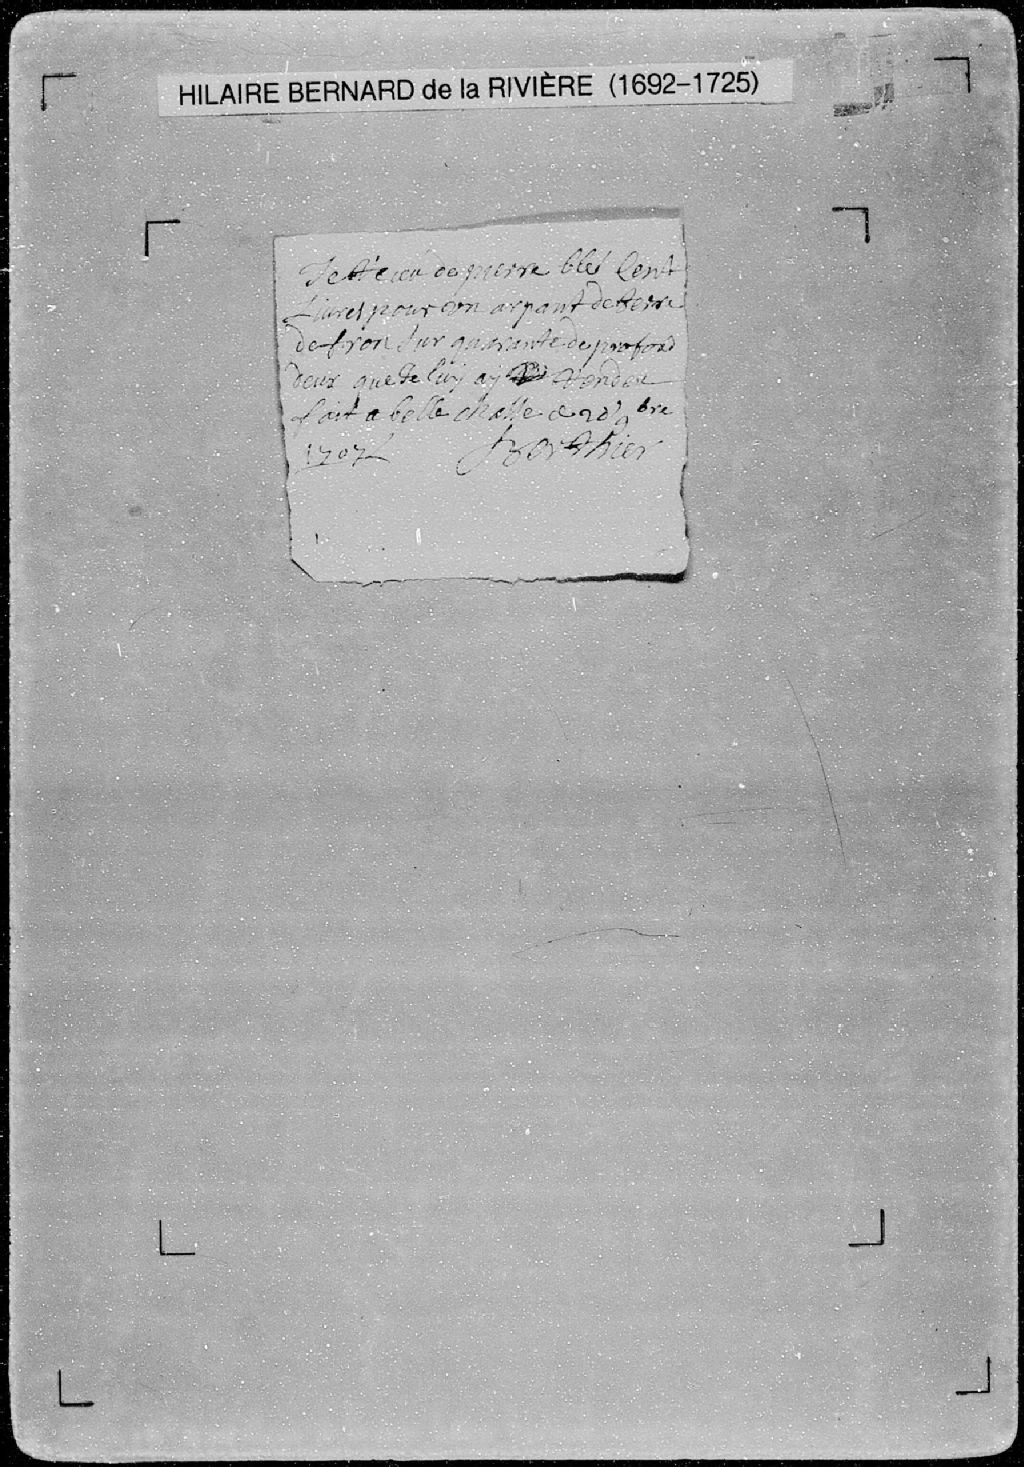 HILAIRE BERNARD de la RIVIÈRE (1692–1725)
Je de pierre blés Cent
Livres pour un arpant de terre
de fron sur quarante de profon
deur que Je luy aj vendeu
fait a belle chasse 9bre
1707 Berthier